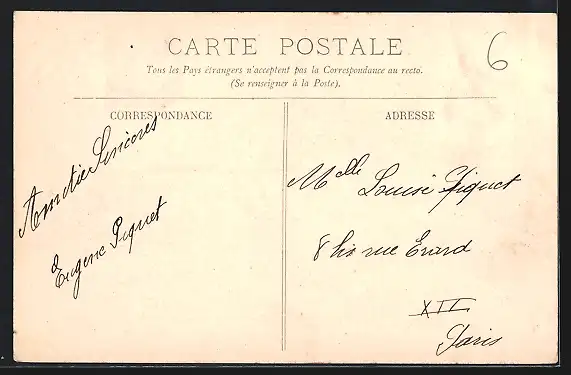 CARTE POSTALE
6
Tous les Pays étrangers n'acceptent pas la Correspondance au recto.
(Se renseigner à la Poste).
CORRESPONDANCE
Amitié Sincères
Eugène Piquet
ADRESSE
Melle Louise Piquet
8 bis rue Erard
XII
Paris